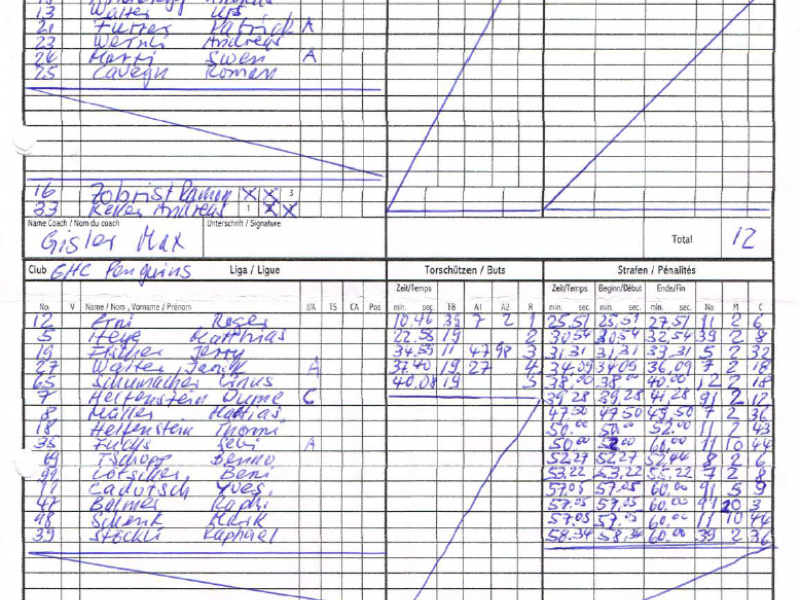 13 Walter Urs
21 Furrer Patrick A
23 Wernli Andreas
24 Marti Swen A
25 Cavegn Roman
16 Zobrist Ramon X X 3
33 Keller Andreas 1 X X
Name Coach / Nom du coach Unterschrift / Signature
Gisler Max Total 12
Club GHC Penguins Liga / Ligue Torschützen / Buts Strafen / Pénalités
Zeit/Temps Zeit/Temps Beginn/Début Ende/Fin
No V Name / Nom, Vorname / Prénom L/A TS CA Pos min. sec. TB A1 A2 R min. sec. min. sec. min. sec. No M C
12 Erni Roger 10.46 39 7 2 1 25.51 25.51 27.51 11 2 6
5 Heye Matthias 22.58 19 2 30.54 30.54 32.54 39 2 8
19 Fischer Jerry 34.59 11 47 98 3 31.31 31.31 33.31 5 2 32
27 Walter Janik A 37.40 19 27 4 34.09 34.09 36.09 7 2 18
65 Schumacher Linus 40.08 19 5 38.00 38.00 40.00 12 2 18
7 Helfenstein Dume C 39.28 39.28 41.28 91 2 12
8 Müller Mathias 47.50 47.50 49.50 7 2 36
18 Helfenstein Thomi 50.00 50.00 52.00 11 2 43
35 Fuchs A 50.00 52.00 60.00 11 10 44
69 Tschopp Benno 52.27 52.27 52.44 8 2 6
99 Lötscher Beni 53.22 53.22 55.22 7 2 8
Cadotsch Yves 57.05 57.05 60.00 91 5 9
47 Balmer Raphi 57.05 57.05 60.00 91 20 3
98 Schenk Maik 57.05 57.05 60.00 11 10 44
39 Stöckli Raphael 58.34 58.34 60.00 39 2 36